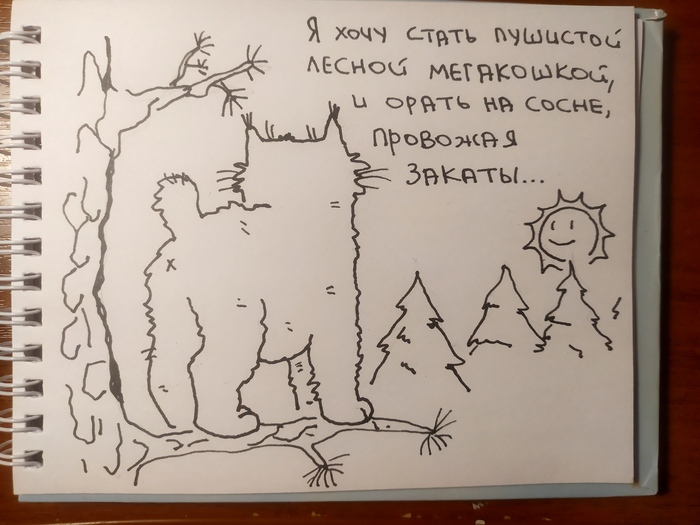 Я ХОЧУ СТАТЬ ПУШИСТОЙ
ЛЕСНОЙ МЕГАКОШКОЙ,
И ОРАТЬ НА СОСНЕ,
ПРОВОЖАЯ
ЗАКАТЫ...